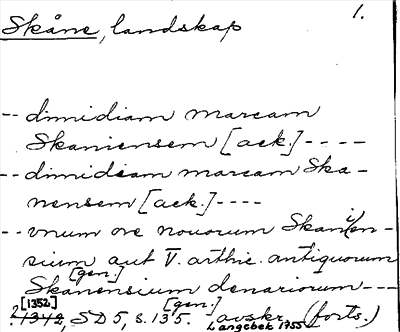 1.
Skåne, landskap
-- dimidiam marcam
Skaniensem [ack.] ----
-- dimidiam marcam Ska-
nensem [ack.] ----
-- vnum ore nouorum Skanien-
sium aut V. arthic. antiquorum
[gen.]
Skanensium denariorum ---
[1352] [gen.]
?1312, SD5, s. 135. avskr. (forts.)
Langebek 1755